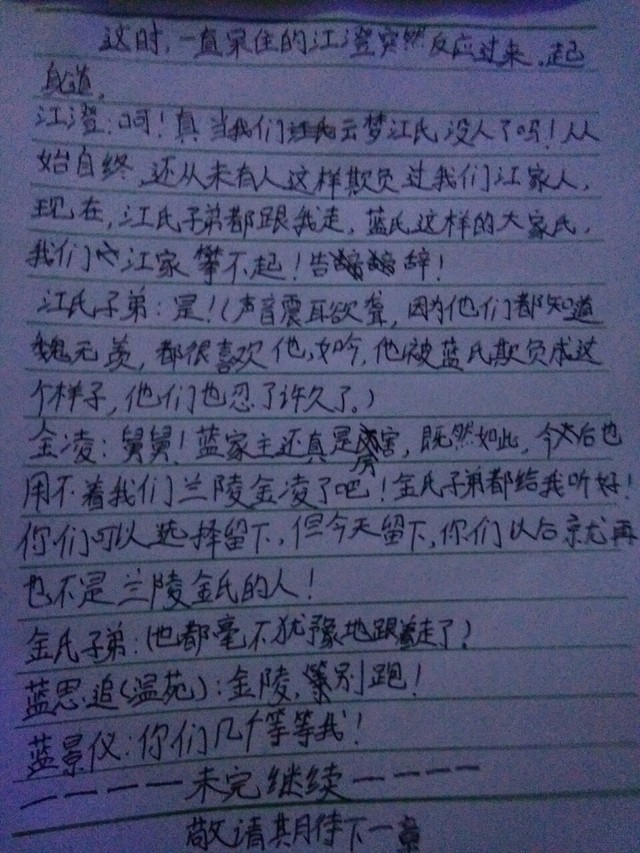 这时,一直呆住的江澄突然反应过来,起
身道。
江澄:呵!真当我们云梦江氏没人了吗!从
始自终,还从未有人这样欺负过我们江家人,
现在,江氏子弟都跟我走,蓝氏这样的大家氏,
我们江家攀不起!告辞!
江氏子弟:是!(声音震耳欲聋,因为他们都知道
魏无羡,都很喜欢他,如今,他被蓝氏欺负成这
个样子,他们也忍了许久了。)
金凌:舅舅!蓝家主还真是厉害,既然如此,今后也
用不着我们兰陵金凌了吧!金氏子弟都给我听好!
你们可以选择留下,但今天留下,你们以后就再
也不是兰陵金氏的人!
金氏子弟:(也都毫不犹豫地跟着走了)
蓝思追(温苑):金陵,别跑!
蓝景仪:你们几个等等我!
-----未完继续-----
敬请期待下一章